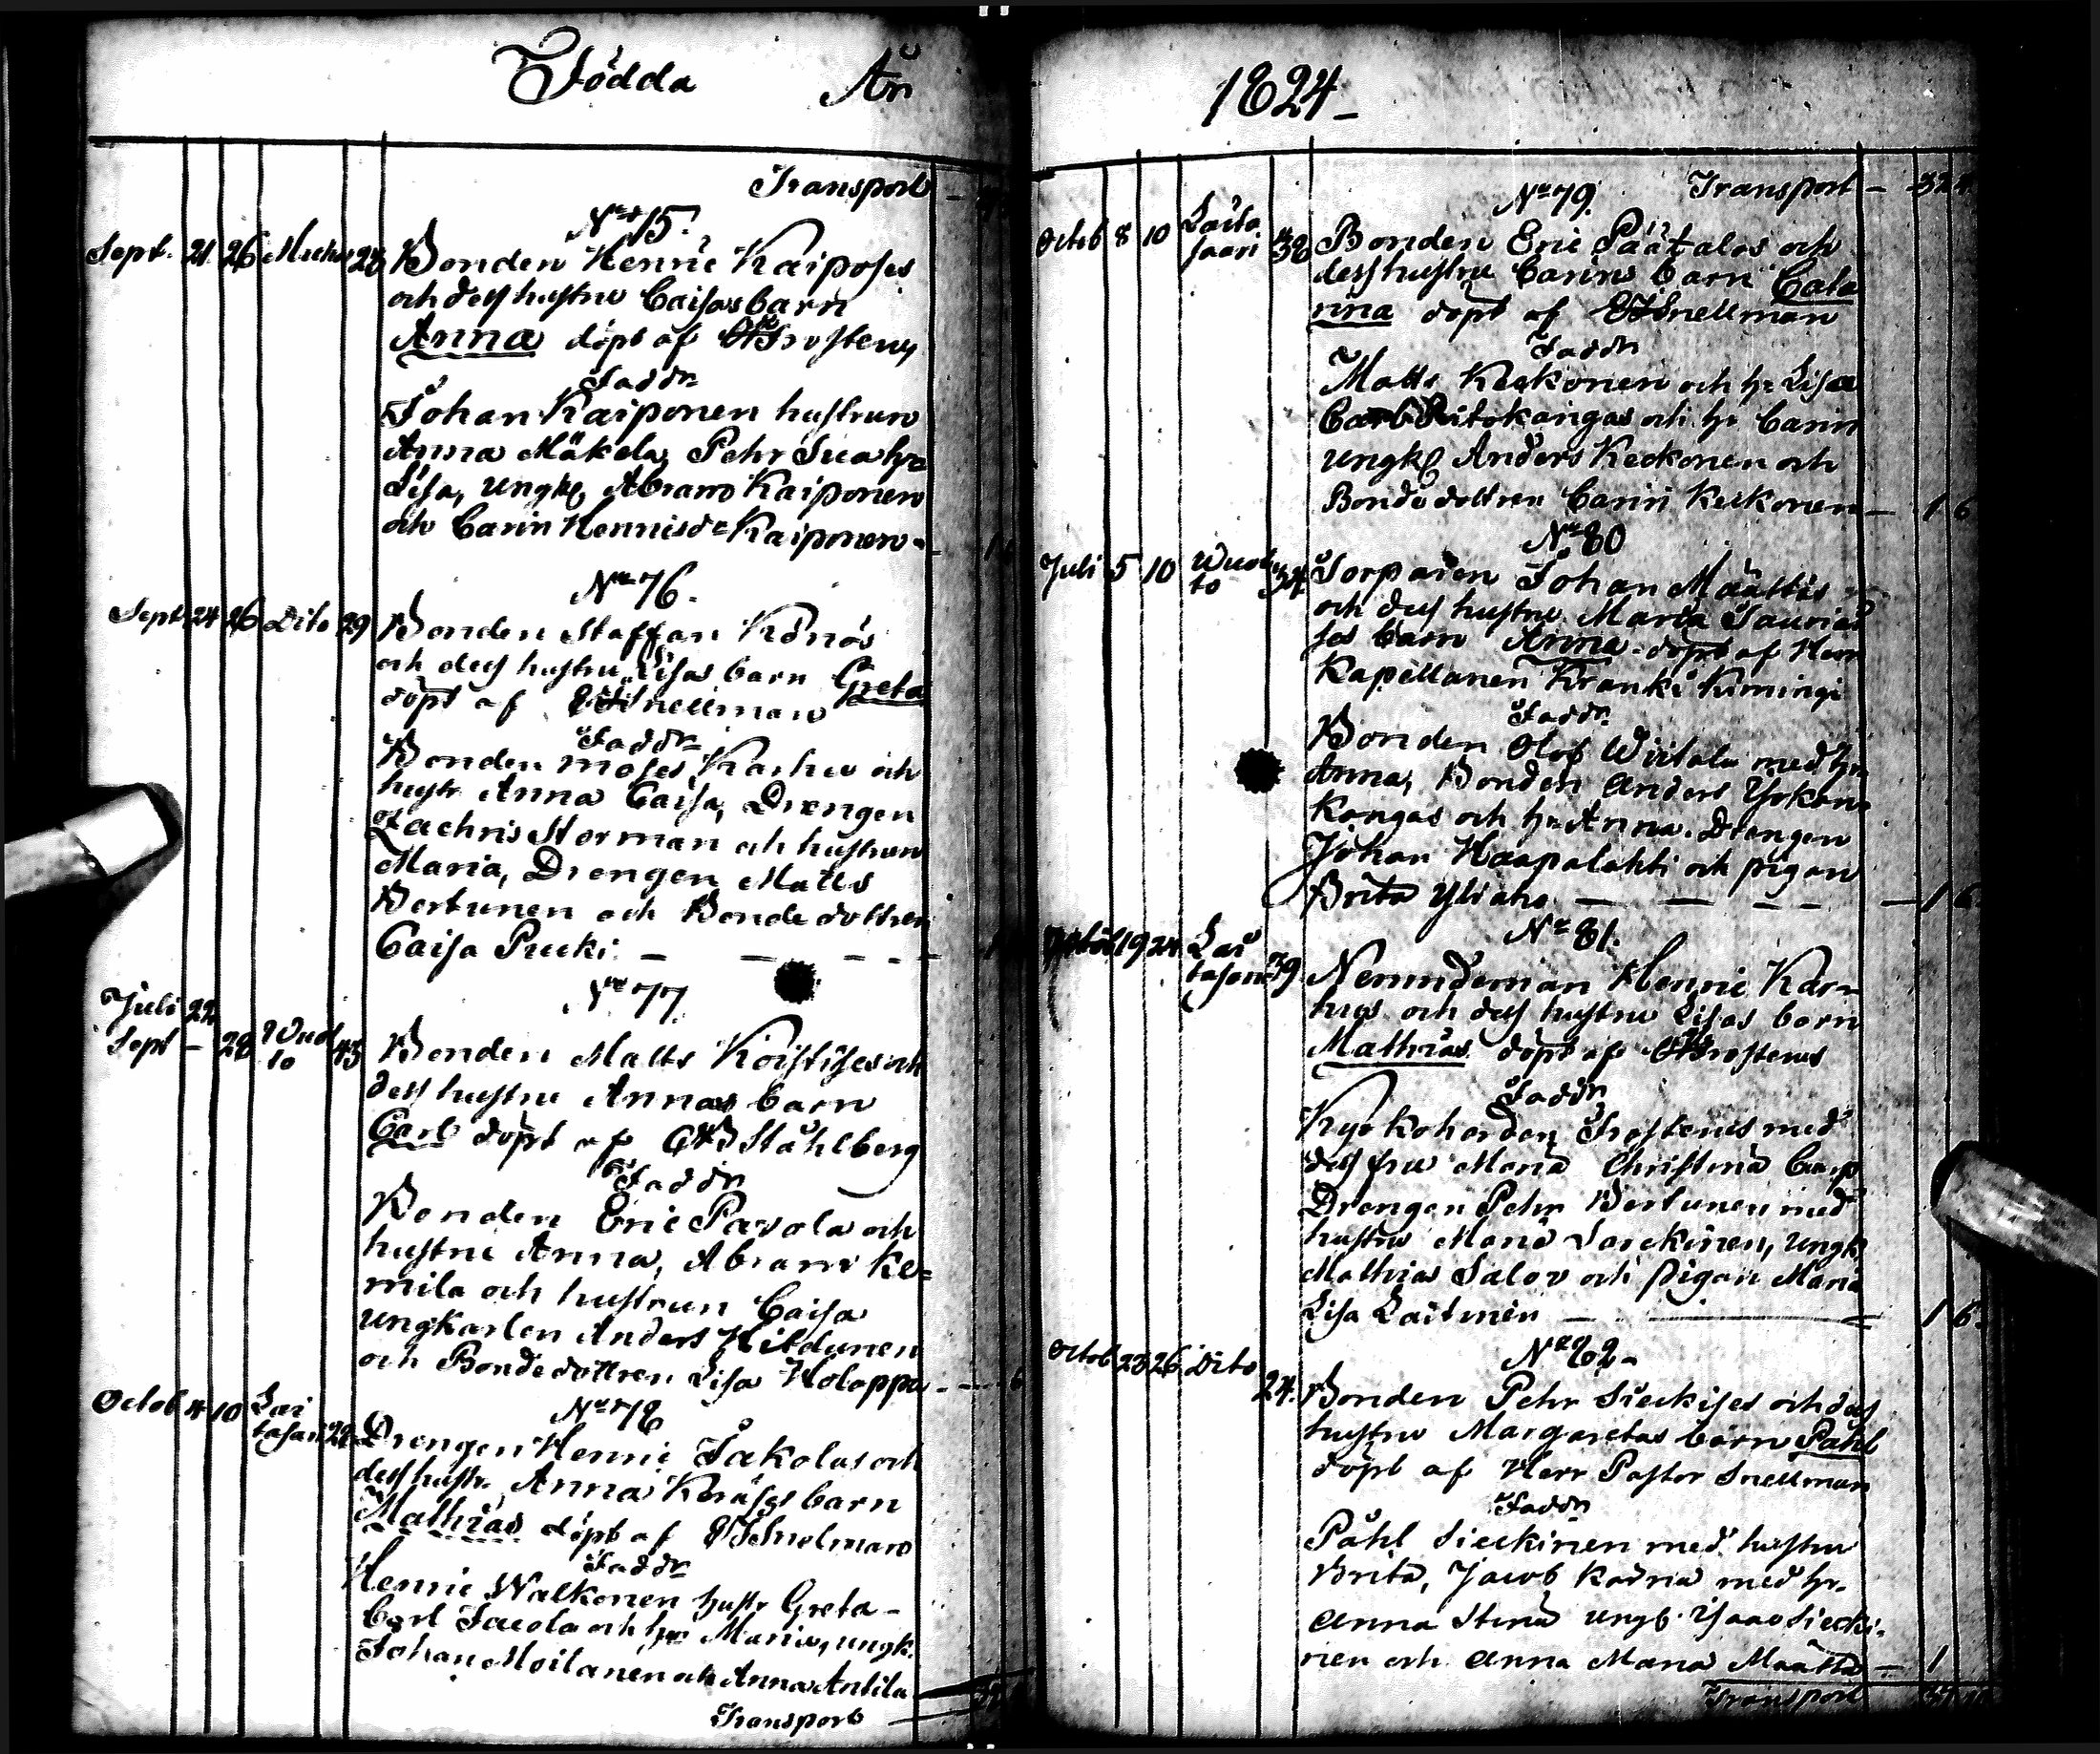 Födda År
1824
Transport
No 75.
Sept. 21 26 28 Bonden Henric Kaiposes
och dess hustru Caisas barn
Anna döpt af Frostenus
Faddr
Johan Kaiponen hustrun
Anna Mäkela, Pehr Sua hr
Lisa, ungk Abram Kaiponen
och Carin Hennisdr Kaiponen
No 76.
Sept 24 26 Dito 29 Bonden Staffan Könös
och dess hustru Lisas barn Greta
döpt af Snellman
Faddr
Bonden Moses Karhu och
hustr Anna Caisa, Drengen
Zachris Storman och hustrun
Maria, Drengen Matts
Bertunen och Bonde dottren
Caisa Pucki
No 77.
Juli 22
Sept 28 Wuok
to 43 Bonden Matts Koistises och
dess hustru Annas barn
Carl döpt af Ståhlberg
Faddr
Bonden Eric Pavola och
hustru Anna, Abram Ke=
mila och hustrun Caisa
ungkarlen Anders Hildunen
och Bondedottren Lisa Holappa
No 78
Octob 4 10 Lai
tasari 22 Drengen Henric Jakolas och
dess hustr. Anna Keräses barn
Mathias döpt af Snelman
Faddr
Henric Walkonen hustr Greta
Carl Jacola och hr Maria, ungk.
Johan Moilanen och Anna Antila
Transport
No 79. Transport
Octob 8 10 Laita
saari 38 Bonden Eric Päätalos och
dess hustru Carins barn Cata
rina döpt af Snellman
Faddr
Matts Keckonen och hr Lisa
och hr Carin
ungk Anders Keckonen och
Bonde dottren Carin Keckonen 1 6
No 80
Juli 5 10 Wuok
to 34 Torparen Johan Määttäs
och dess hustru Marta Tauriai
ses barn Anna döpt af Herr
Kapellanen Kranki Kimingi
Faddr.
Bonden Olof Wirtala med hr
Anna, Bonden Anders
kangas och hr Anna. Drengen
Johan Haapalahti och pigan
Brita Yliaho 1 6
No 81.
19 24 Lai
tasari 39 Nemndeman Henric Kar=
hus och dess hustru Lisas barn
Mathias döpt af Frostenus
Faddr
Kyrkoherden Frostenus med
dess fru Maria Christina Carp
Drengen Pehr Bertunen med
hustru Maria Sarckinen, ungk
Mathias Salov och pigan Maria
Lisa Laitinen 1 6
No 82
Octob 23 26 Dito 24. Bonden Pehr Sieckises och dess
hustru Margaretas barn Påhl
döpt af Herr Pastor Snellman
Faddr
Påhl Sieckinen med hustru
Brita, Jacob Kadria med hr.
Anna Stina ungk Isaac Siecki-
nen och Anna Maria Määttä 1
Transport